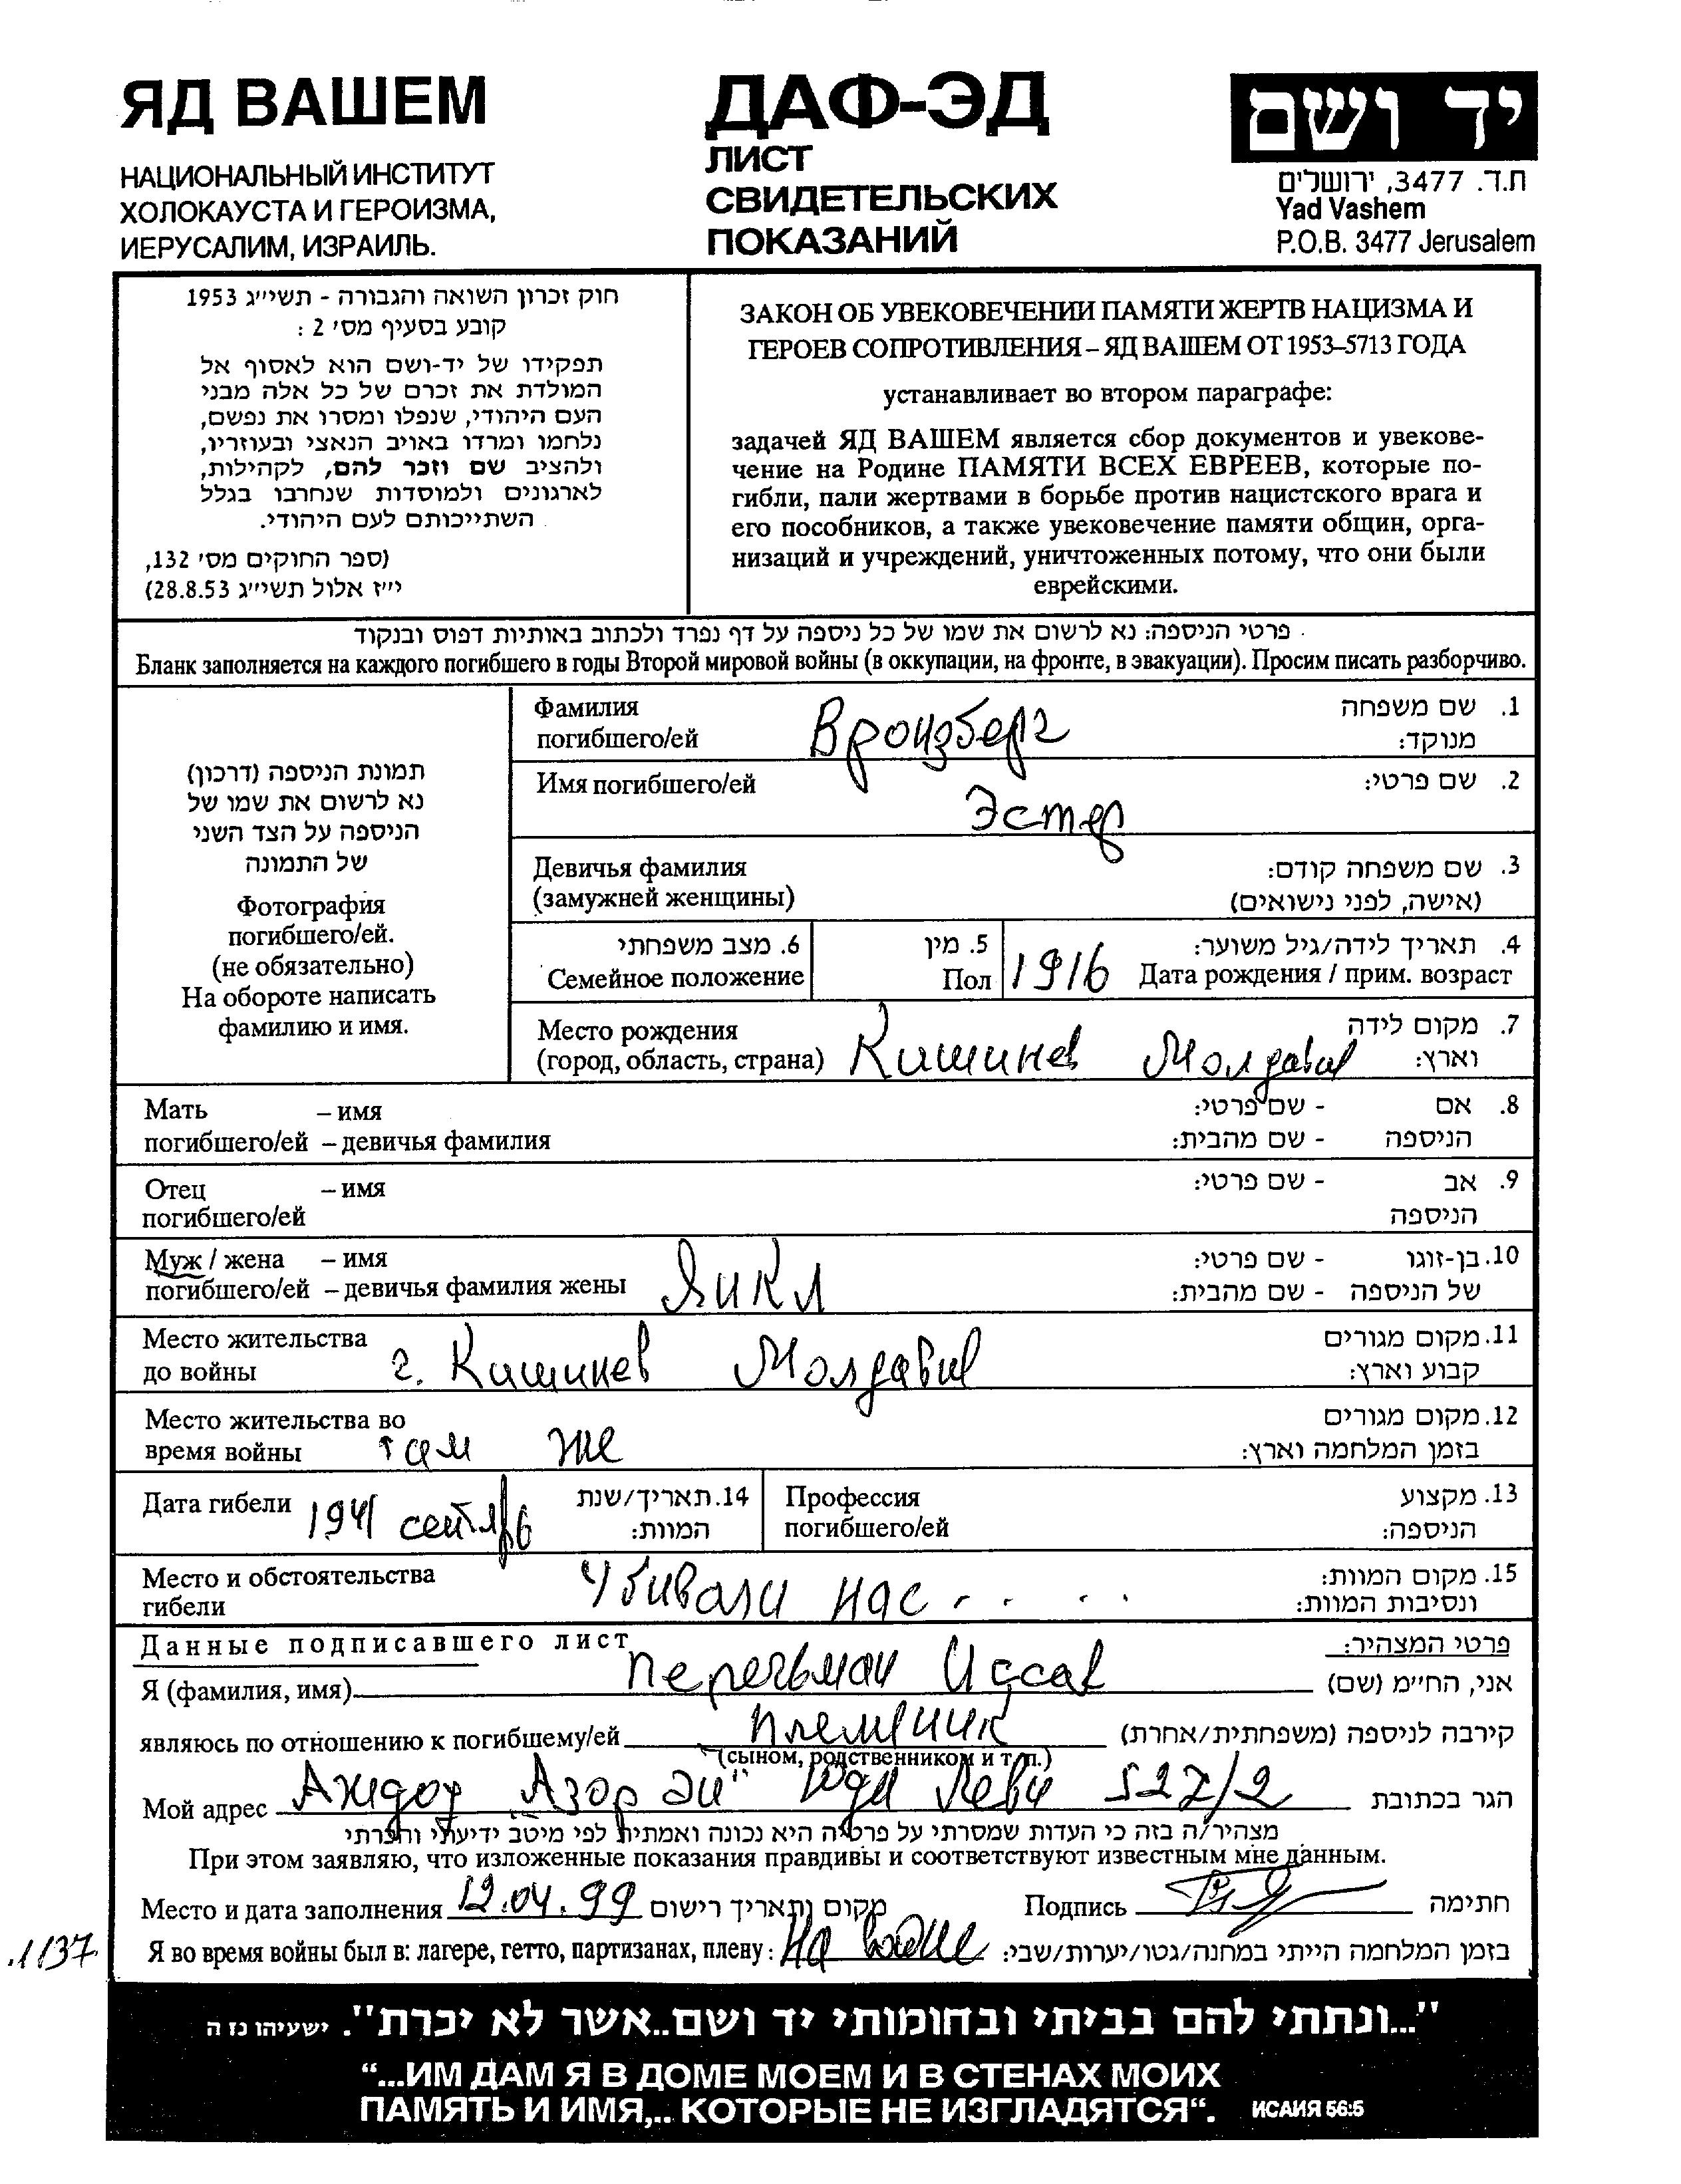 ЯД ВАШЕМ
НАЦИОНАЛЬНЫЙ ИНСТИТУТ
ХОЛОКАУСТА И ГЕРОИЗМА,
ИЕРУСАЛИМ, ИЗРАИЛЬ.
ДАФ-ЭД
ЛИСТ
СВИДЕТЕЛЬСКИХ
ПОКАЗАНИЙ
יד ושם
ת.ד. 3477, ירושלים
Yad Vashem
P.O.B. 3477 Jerusalem
חוק זכרון השואה והגבורה - תשי״ג 1953
קובע בסעיף מס׳ 2 :
תפקידו של יד-ושם הוא לאסוף אל
המולדת את זכרם של כל אלה מבני
העם היהודי, שנפלו ומסרו את נפשם,
נלחמו ומרדו באויב הנאצי ובעוזריו,
ולהציב שם וזכר להם, לקהילות,
לארגונים ולמוסדות שנחרבו בגלל
השתייכותם לעם היהודי.
(ספר החוקים מס׳ 132,
י״ז אלול תשי״ג 28.8.53)
ЗАКОН ОБ УВЕКОВЕЧЕНИИ ПАМЯТИ ЖЕРТВ НАЦИЗМА И
ГЕРОЕВ СОПРОТИВЛЕНИЯ – ЯД ВАШЕМ ОТ 1953–5713 ГОДА
устанавливает во втором параграфе:
задачей ЯД ВАШЕМ является сбор документов и увекове-
чение на Родине ПАМЯТИ ВСЕХ ЕВРЕЕВ, которые по-
гибли, пали жертвами в борьбе против нацистского врага и
его пособников, а также увековечение памяти общин, орга-
низаций и учреждений, уничтоженных потому, что они были
еврейскими.
פרטי הניספה: נא לרשום את שמו של כל ניספה על דף נפרד ולכתוב באותיות דפוס ובנקוד
Бланк заполняется на каждого погибшего в годы Второй мировой войны (в оккупации, на фронте, в эвакуации). Просим писать разборчиво.
תמונת הניספה (דרכון)
נא לרשום את שמו של
הניספה על הצד השני
של התמונה
Фотография
погибшего/ей.
(не обязательно)
На обороте написать
фамилию и имя.
Фамилия 1. שם משפחה
погибшего/ей Вронзберг מנוקד:
Имя погибшего/ей Эстер 2. שם פרטי:
Девичья фамилия 3. שם משפחה קודם:
(замужней женщины) (אישה, לפני נישואים)
6. מצב משפחתי 5. מין 4. תאריך לידה/גיל משוער:
Семейное положение Пол 1916 Дата рождения / прим. возраст
Место рождения 7. מקום לידה
(город, область, страна) Кишинев Молдавия וארץ:
Мать – имя 8. אם - שם פרטי:
погибшего/ей – девичья фамилия הניספה - שם מהבית:
Отец – имя 9. אב - שם פרטי:
погибшего/ей הניספה
Муж / жена – имя Янкл 10. בן-זוגו - שם פרטי:
погибшего/ей – девичья фамилия жены של הניספה - שם מהבית:
Место жительства 11. מקום מגורים
до войны г. Кишинев Молдавия קבוע וארץ:
Место жительства во 12. מקום מגורים
время войны там же בזמן המלחמה וארץ:
Дата гибели 1941 сентябрь 14. תאריך/שנת המוות:
Профессия 13. מקצוע
погибшего/ей הניספה:
Место и обстоятельства 15. מקום המוות:
гибели Убивали нас - - . . ונסיבות המוות:
Данные подписавшего лист פרטי המצהיר:
Я (фамилия, имя) Перельман Иссак אני, הח״מ (שם)
являюсь по отношению к погибшему/ей племянник קירבה לניספה (משפחתית/אחרת)
(сыном, родственником и т.п.)
Мой адрес Ашдод Азор Леви 527/2 הגר בכתובת
מצהיר/ה בזה כי העדות שמסרתי על פרטיה היא נכונה ואמתית לפי מיטב ידיעתי והכרתי
При этом заявляю, что изложенные показания правдивы и соответствуют известным мне данным.
Место и дата заполнения 12.04.99 מקום ותאריך רישום Подпись חתימה
Я во время войны был в: лагере, гетто, партизанах, плену: На войне בזמן המלחמה הייתי במחנה/גטו/יערות/שבי:
.1137
"...ונתתי להם בביתי ובחומותי יד ושם..אשר לא יכרת". ישעיהו נז ה
“...ИМ ДАМ Я В ДОМЕ МОЕМ И В СТЕНАХ МОИХ
ПАМЯТЬ И ИМЯ,.. КОТОРЫЕ НЕ ИЗГЛАДЯТСЯ“. ИСАИЯ 56:5